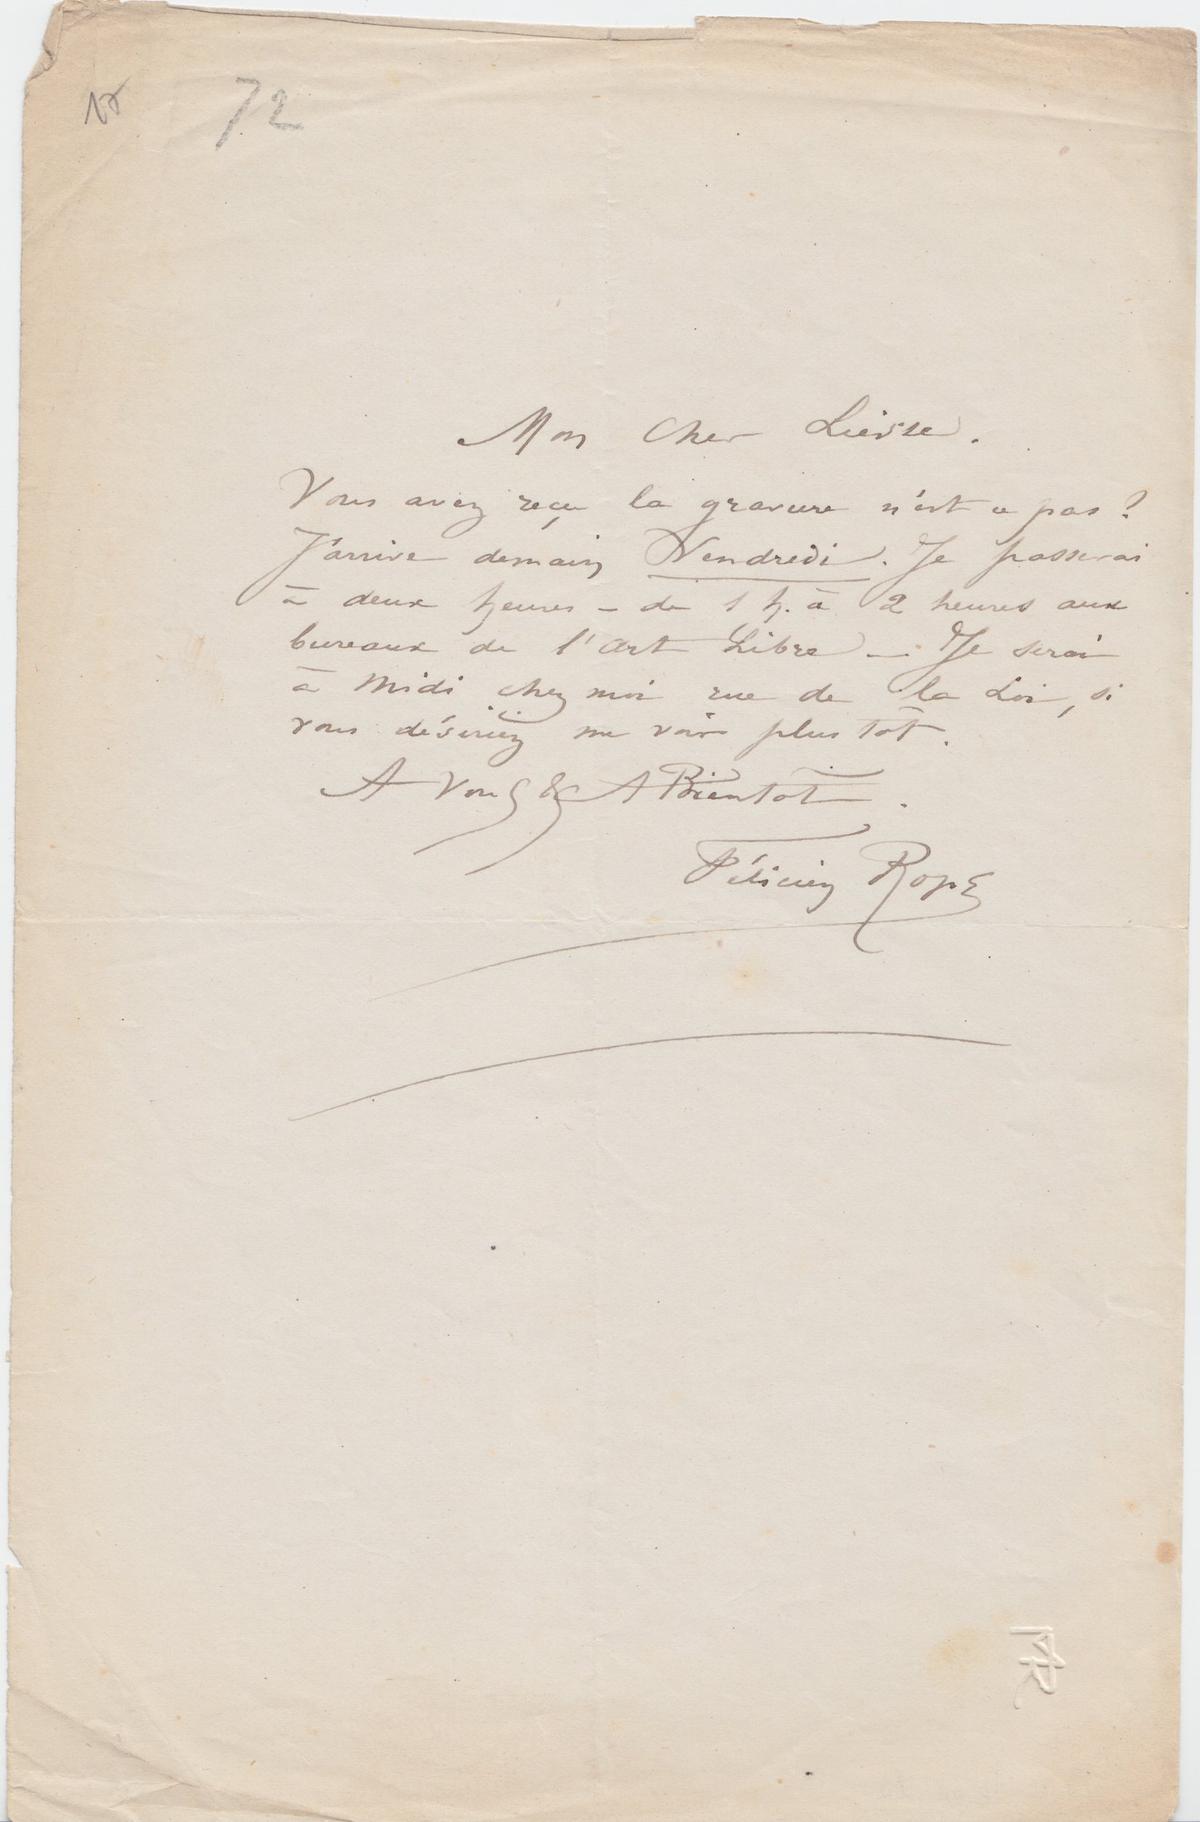 72
Mon Cher Liesse.
Vous avez reçu la gravure n'est ce pas?
J'arrive demain Vendredi. Je passerai
à deux heures – de 1 h. à 2 heures aux
bureaux de l'Art Libre – Je serai
à Midi chez moi rue de la Loi, si
vous désiriez me voir plus tôt.
A Vous & A Bientôt.
Félicien Rops
FR